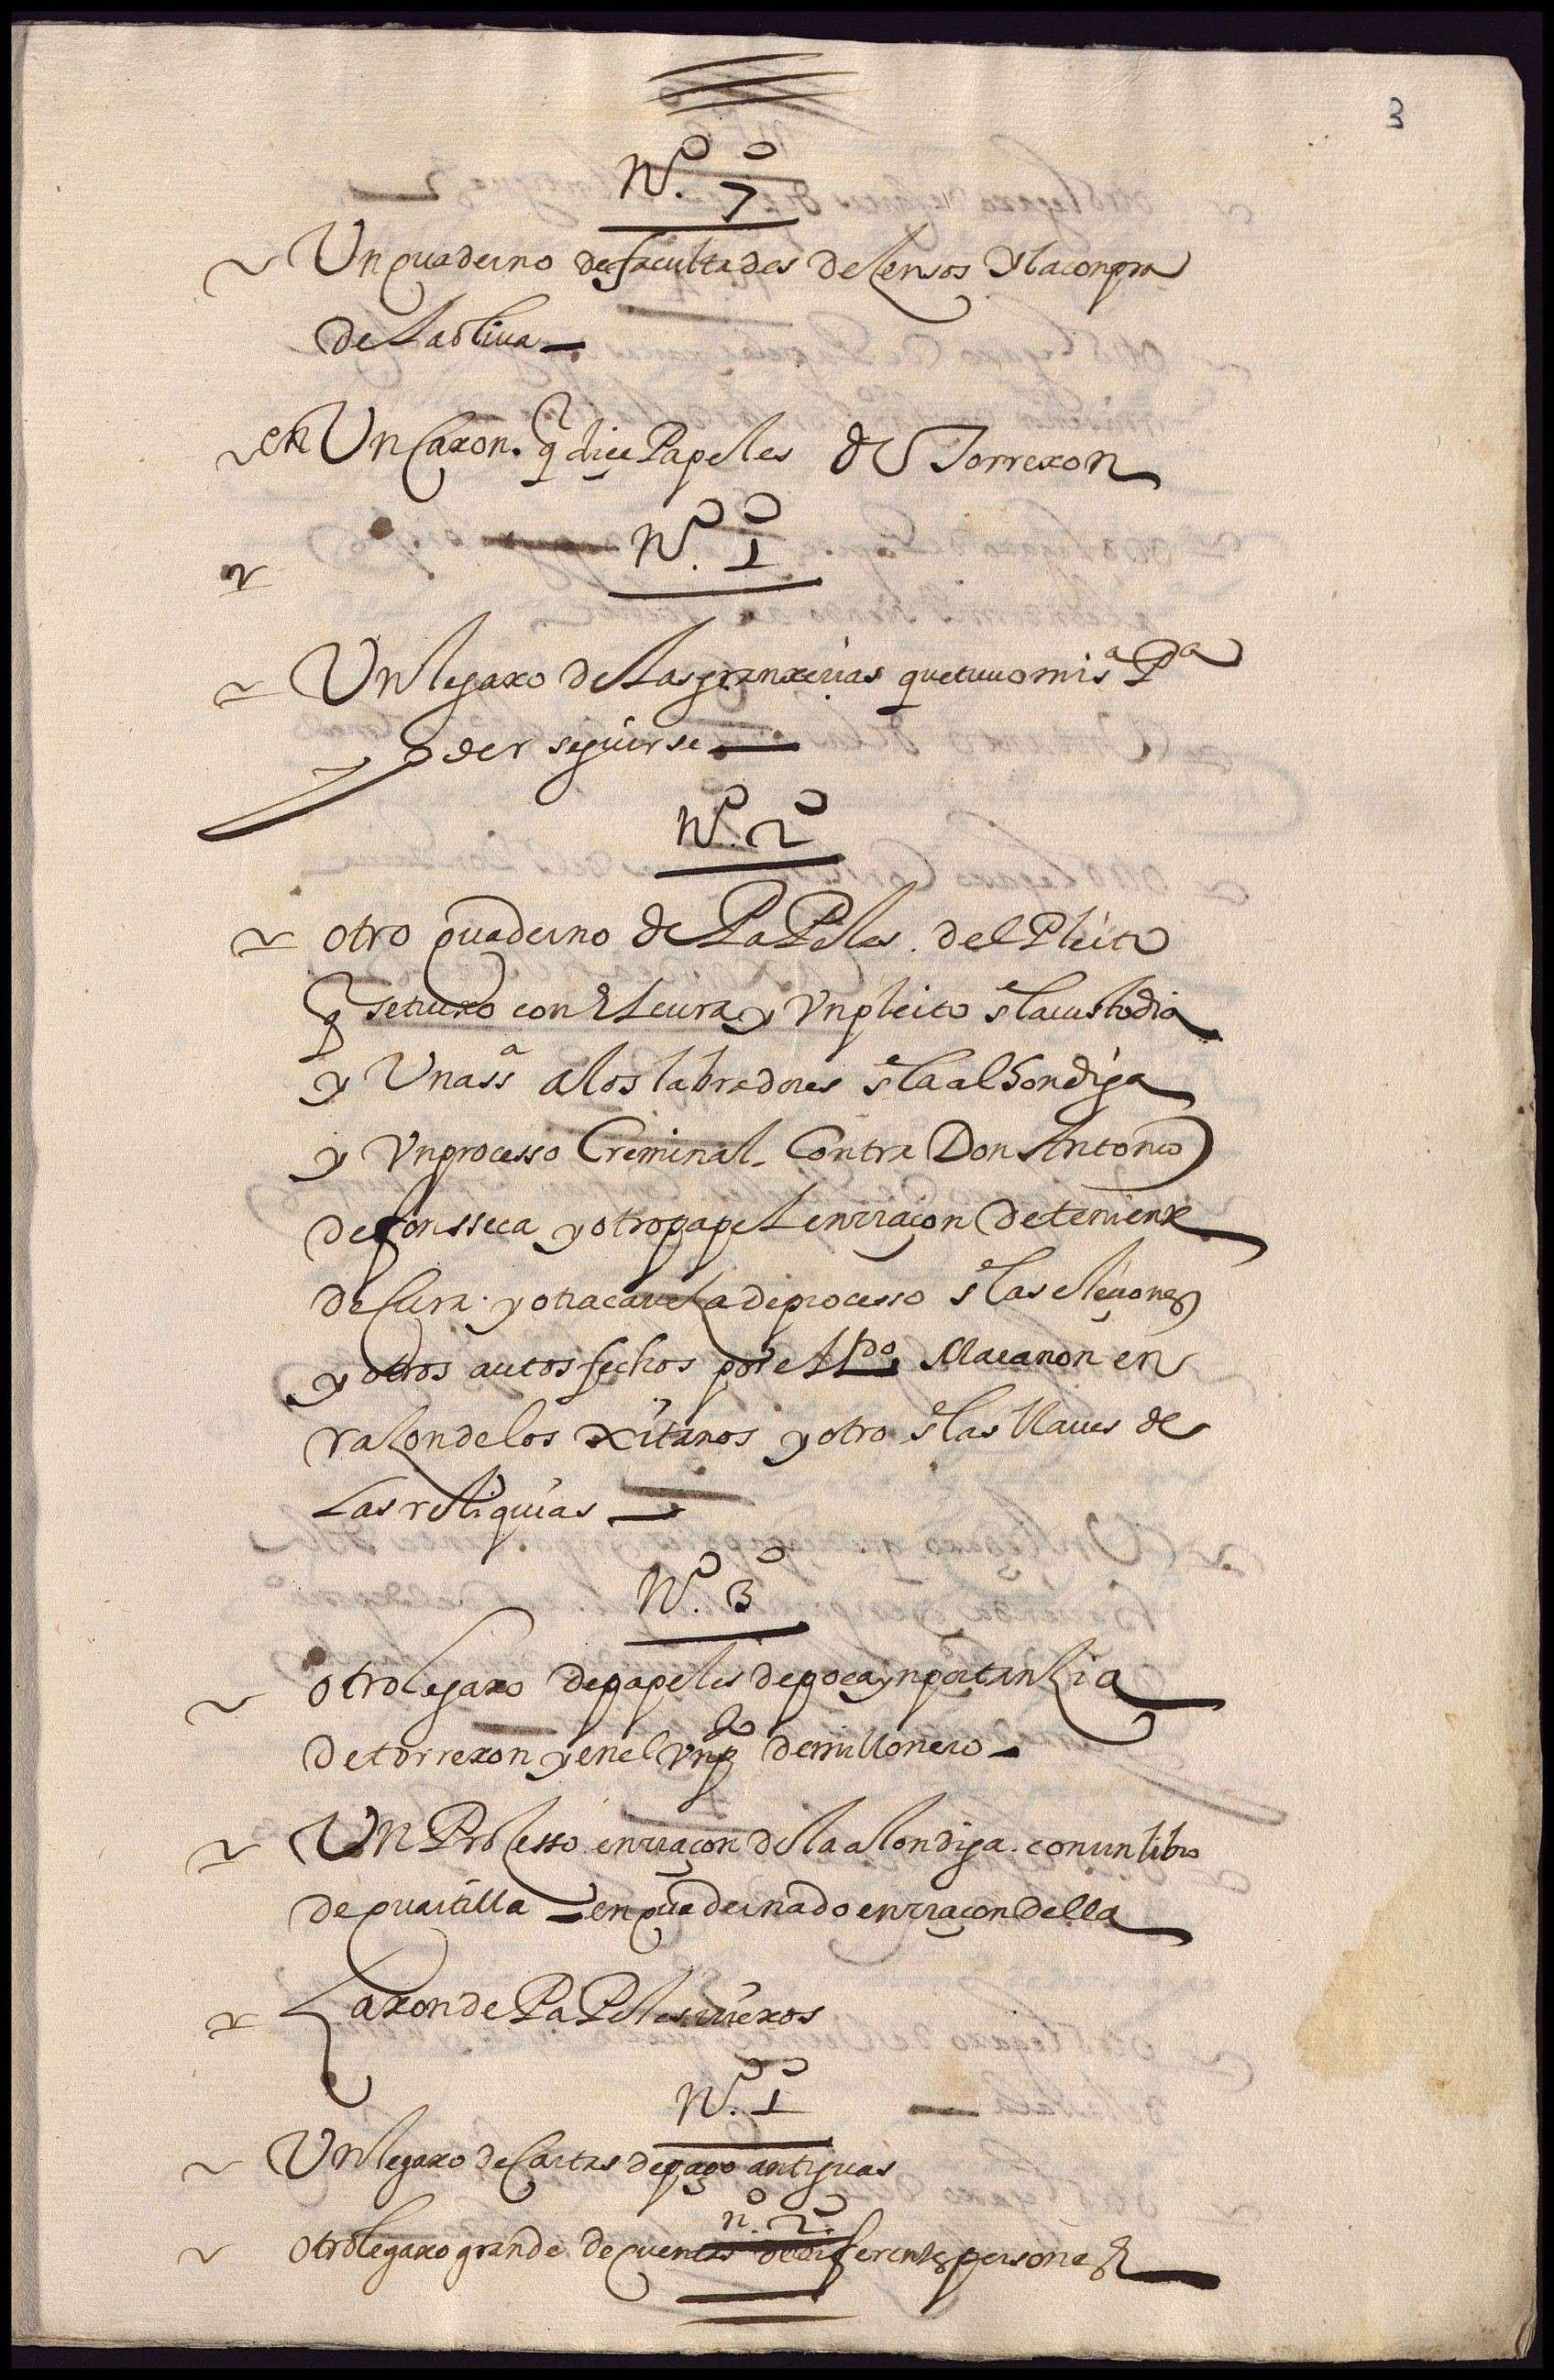 3
N.º 7º
Un quaderno de facultades de Censos y la conpra
de La oliua
en Un Caxon. q̃ dice Papeles de Torrexon
N.º 1º
Un legaxo de Las granxerias que tuuo mi sª Pª
der seguirse
N.º 2º
otro quaderno de PaPeles del Pleito
q̃ se tuuo con El cura y Un pleito sᵉ la custodia
y Una ssª a los labradores sᵉ la alhondiga
y Un processo Creminal Contra Don Antonio
de fonsseca y otro papel en rraçon de teniente
de Cura y otra cauesa de processo sᵉ las eleçiones
y otros autos fechos por el Lᵈᵒ Macanon en
raçon de los xitanos y otro sᵉ las llaues de
Las reliquias
N.º 3º
otro legaxo de papeles de poca ynportançia
de torrexon y en el Un pᵈᵒ de millonero
Un Proçesso en rraçon de la alondiga con un libro
de quartilla enquadernado en rraçon della
Caxon de PaPeles uiexos
N.º 1º
Un legaxo de Cartas de pago antiguas
n.º 2º
otro legaxo grande de Cuentas de diferentes personas